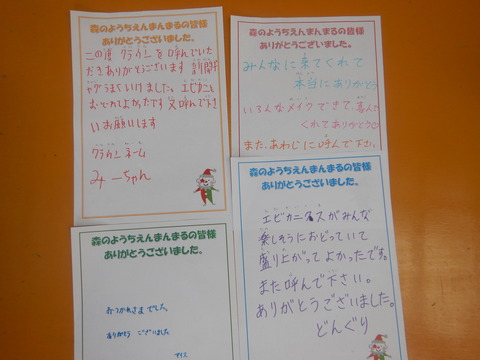 森のようちえんまんまるの皆様
ありがとうございました。
この度 クラウンを呼んでいた
だきありがとうございます 新聞ギ
ャグうまくいけました。エビカニも
おどれてよかったです 又呼んで下さ
いお願いします
クラウンネーム
みーちゃん
森のようちえんまんまるの皆様
ありがとうございました。
みんなに来てくれて
本当にありがとう
いろんなメイクできて、喜んで
くれてありがとう
また、あわじに呼んで下さい。
森のようちえんまんまるの皆様
ありがとうございました。
おつかれさまでした。
ありがとう ございました
アイス
森のようちえんまんまるの皆様
ありがとうございました。
エビカニクスがみんな
楽しそうにおどっていて
盛り上がってよかったです。
また呼んで下さい。
ありがとうございました。
どんぐり